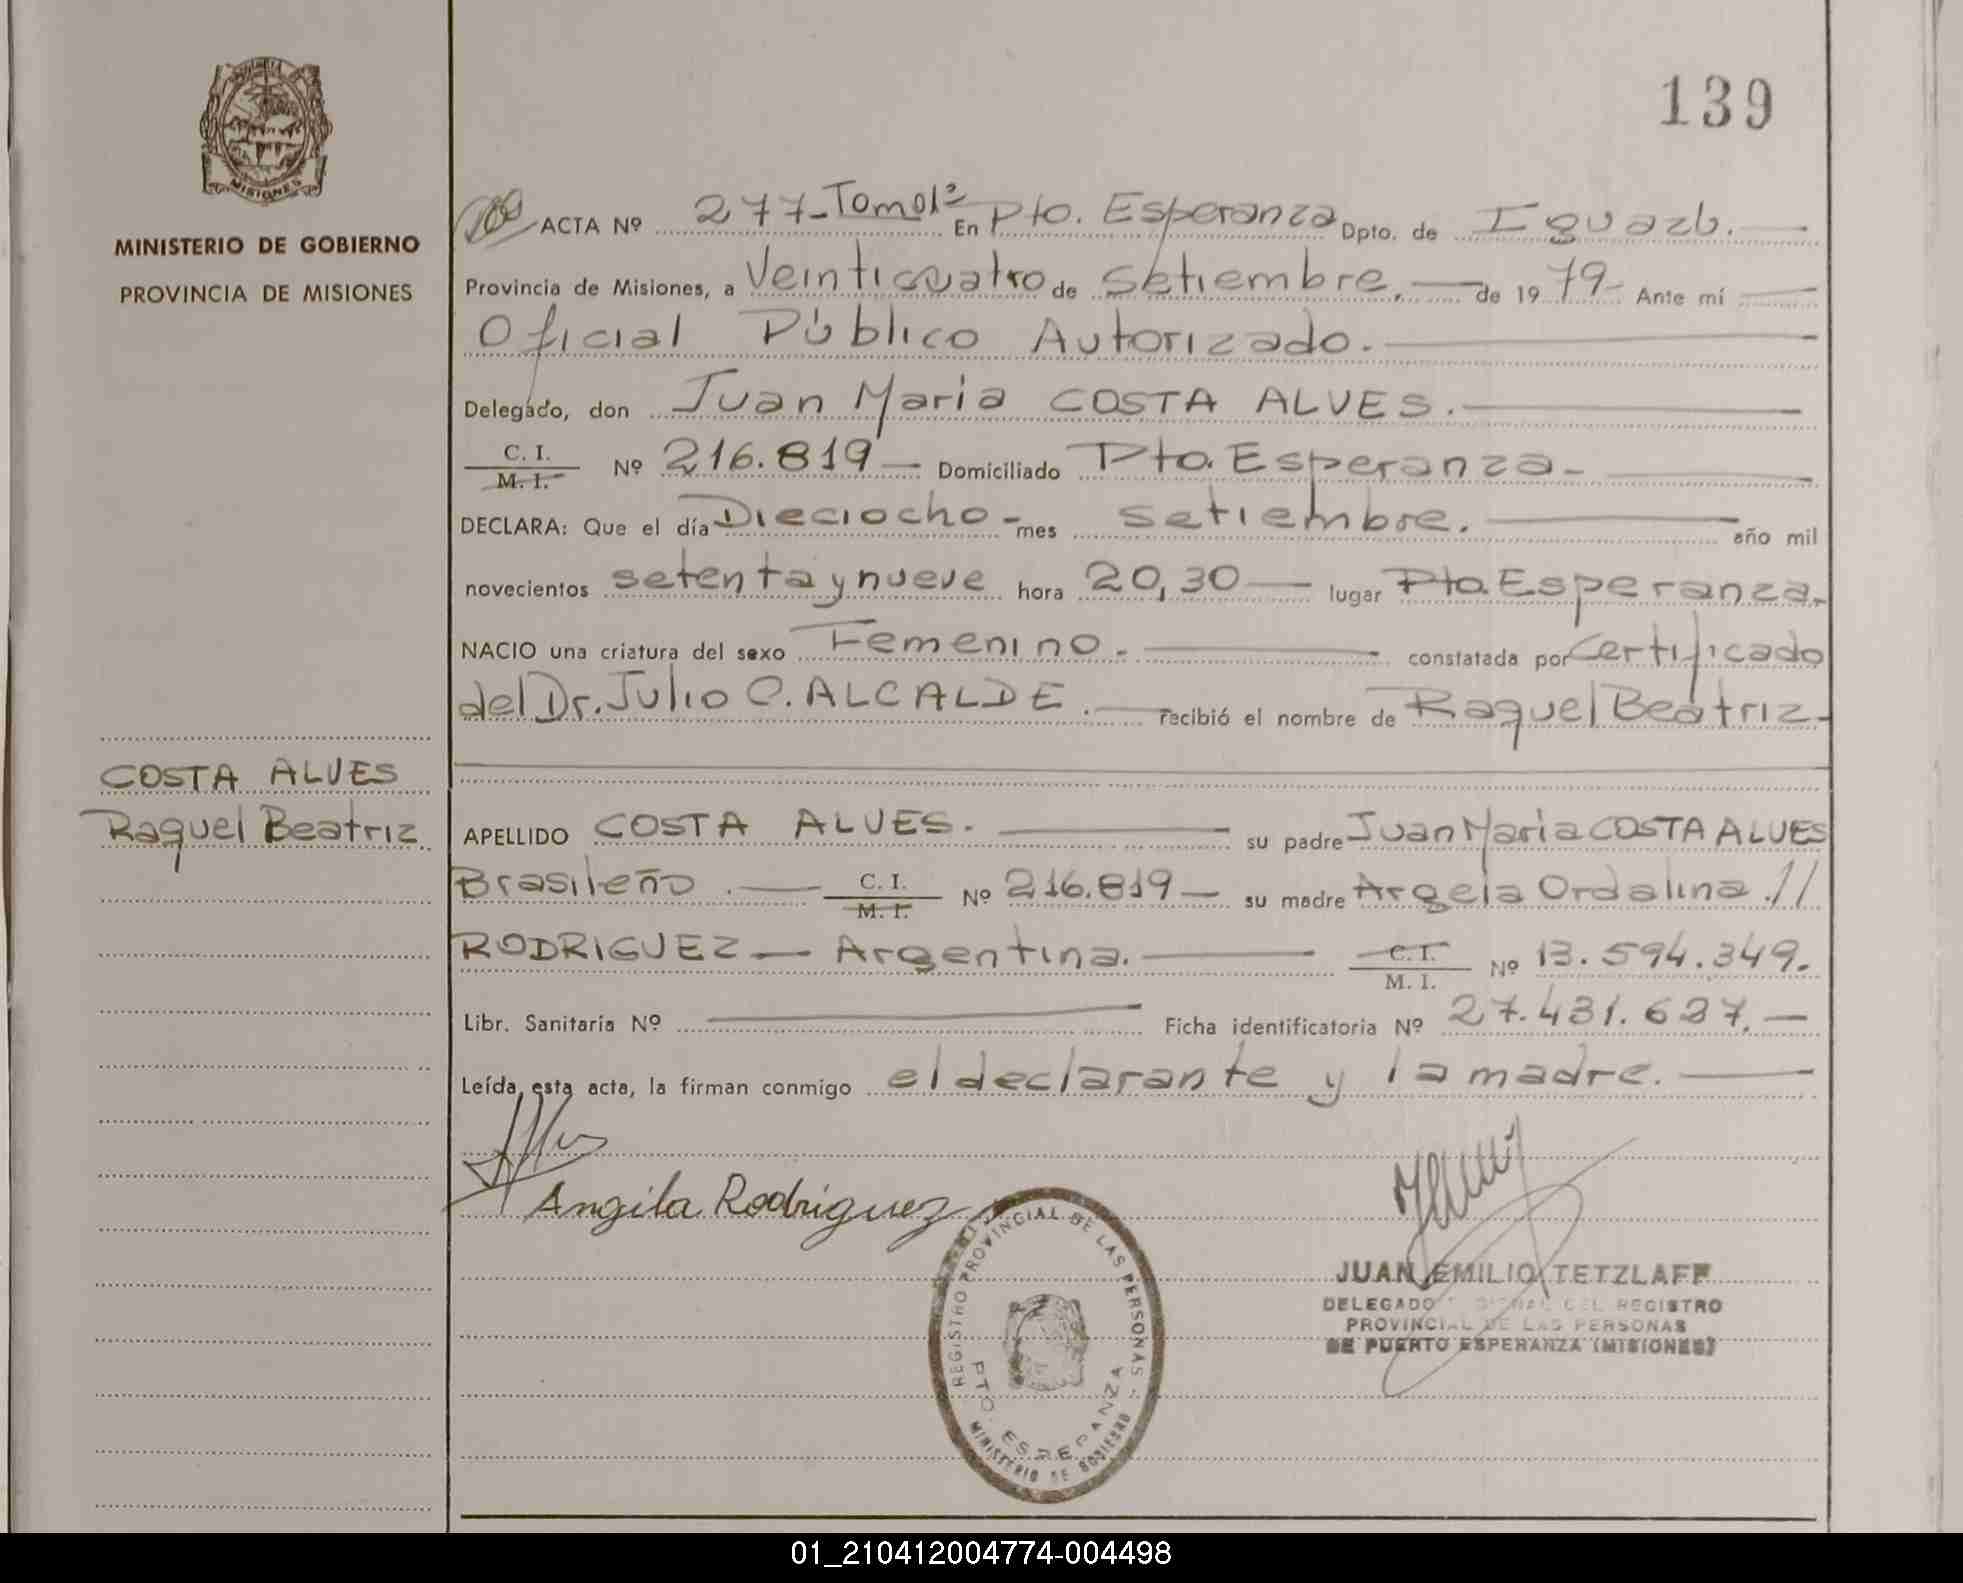 139
MISIONES
MINISTERIO DE GOBIERNO
PROVINCIA DE MISIONES
ACTA Nº 277-Tomo1º En Pto. Esperanza Dpto. de Iguazú.
Provincia de Misiones, a Veinticuatro de Setiembre. de 1979- Ante mí
Oficial Público Autorizado.
Delegado, don Juan Maria COSTA ALVES.
C. I.
M. I.
Nº 216.819 Domiciliado Pto. Esperanza-
DECLARA: Que el día Dieciocho- mes setiembre. año mil
novecientos setenta y nueve hora 20,30 lugar Pto. Esperanza.
NACIO una criatura del sexo Femenino. constatada por Certificado
del Dr. Julio C. ALCALDE. recibió el nombre de Raquel Beatriz-
COSTA ALVES
Raquel Beatriz
APELLIDO COSTA ALVES. su padre Juan Maria COSTA ALVES
Brasileño. C. I. M. I. Nº 216.819 su madre Argela Ordalina.//
RODRIGUEZ- Argentina. C. I. M. I. Nº 13.594.349.
Libr. Sanitaría Nº Ficha identificatoria Nº 27.431.687.-
Leída esta acta, la firman conmigo el declarante y la madre.
Angila Rodriguez
REGISTRO PROVINCIAL DE LAS PERSONAS
PTO. ESPERANZA
MINISTERIO DE GOBIERNO
JUAN EMILIO TETZLAFF
DELEGADO DEL REGISTRO
PROVINCIAL DE LAS PERSONAS
DE PUERTO ESPERANZA (MISIONES)
01_210412004774-004498